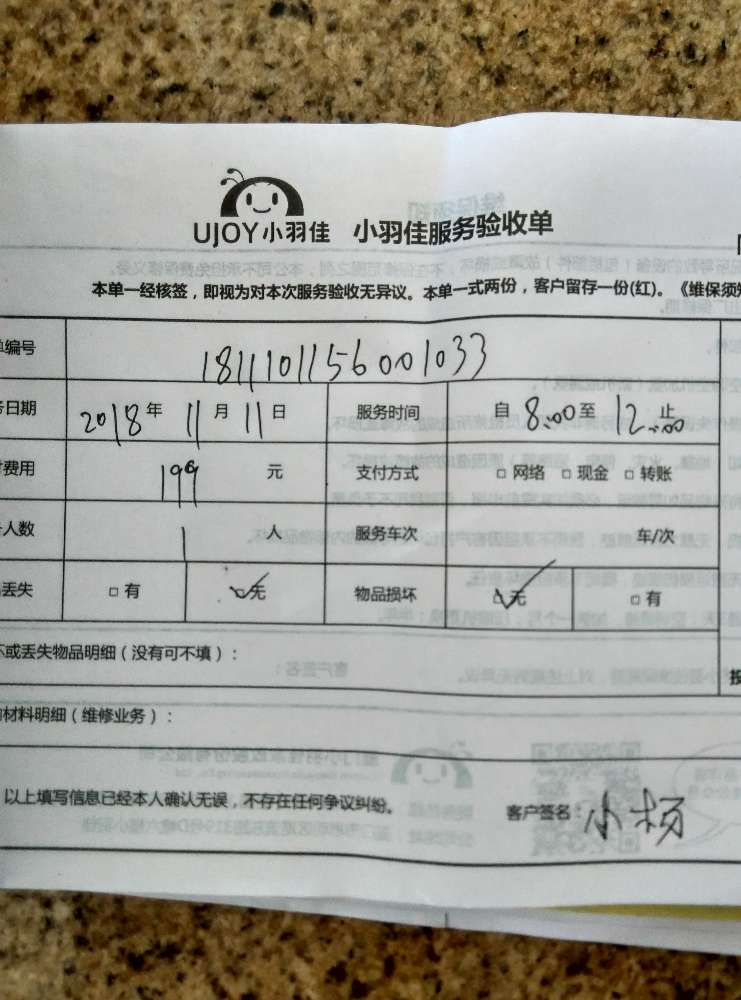 UJOY小羽佳 小羽佳服务验收单
本单一经核签，即视为对本次服务验收无异议。本单一式两份，客户留存一份(红)。《维保须知
单编号 1811101156001033
务日期 2018年11月11日 服务时间 自8:00至12:00止
费用 199元 支付方式 □网络 □现金 □转账
人数 1人 服务车次 车/次
丢失 □有 ☑无 物品损坏 ☑无 □有
坏或丢失物品明细（没有可不填）：
材料明细（维修业务）：
以上填写信息已经本人确认无误，不存在任何争议纠纷。 客户签名：小杨